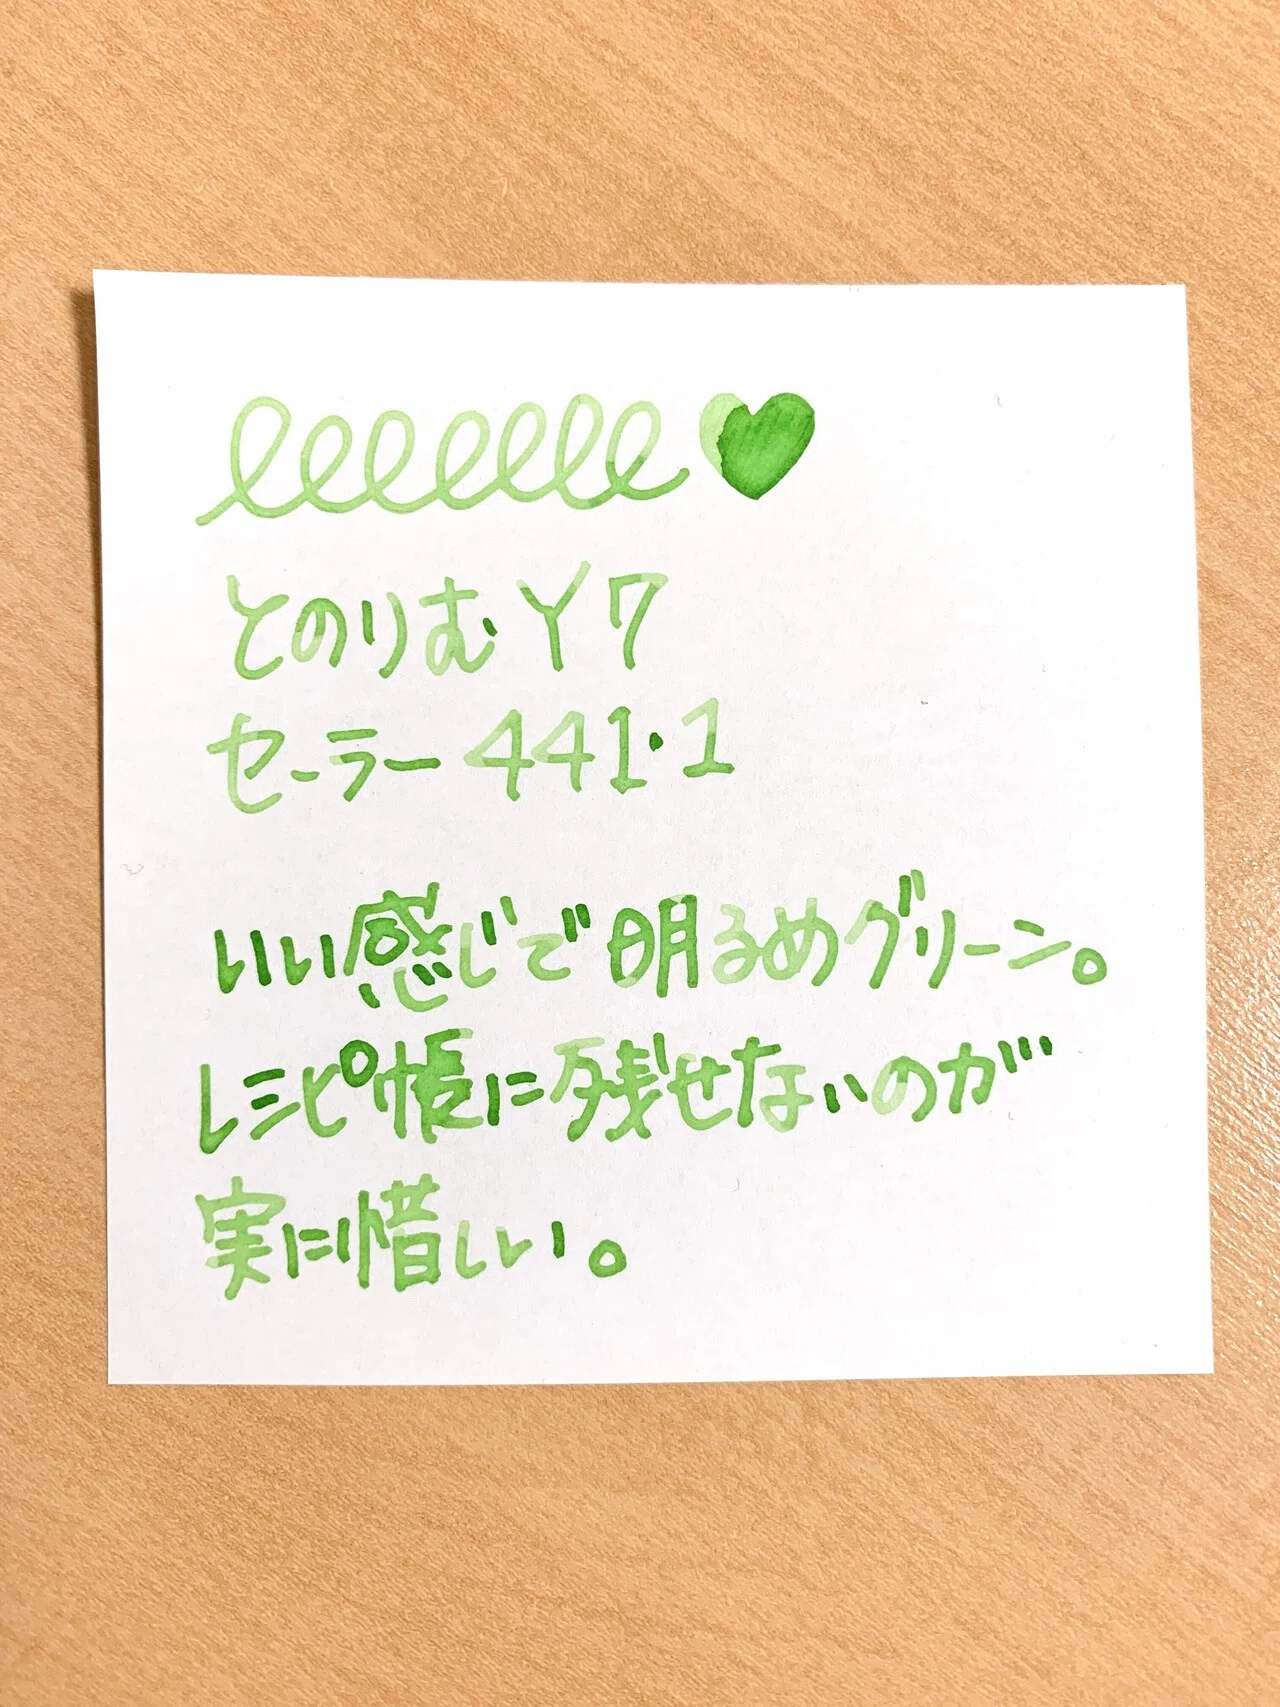 とのりむY7
セーラー441・1
いい感じで明るめグリーン。
レシピ帳に残せないのが
実に惜しい。